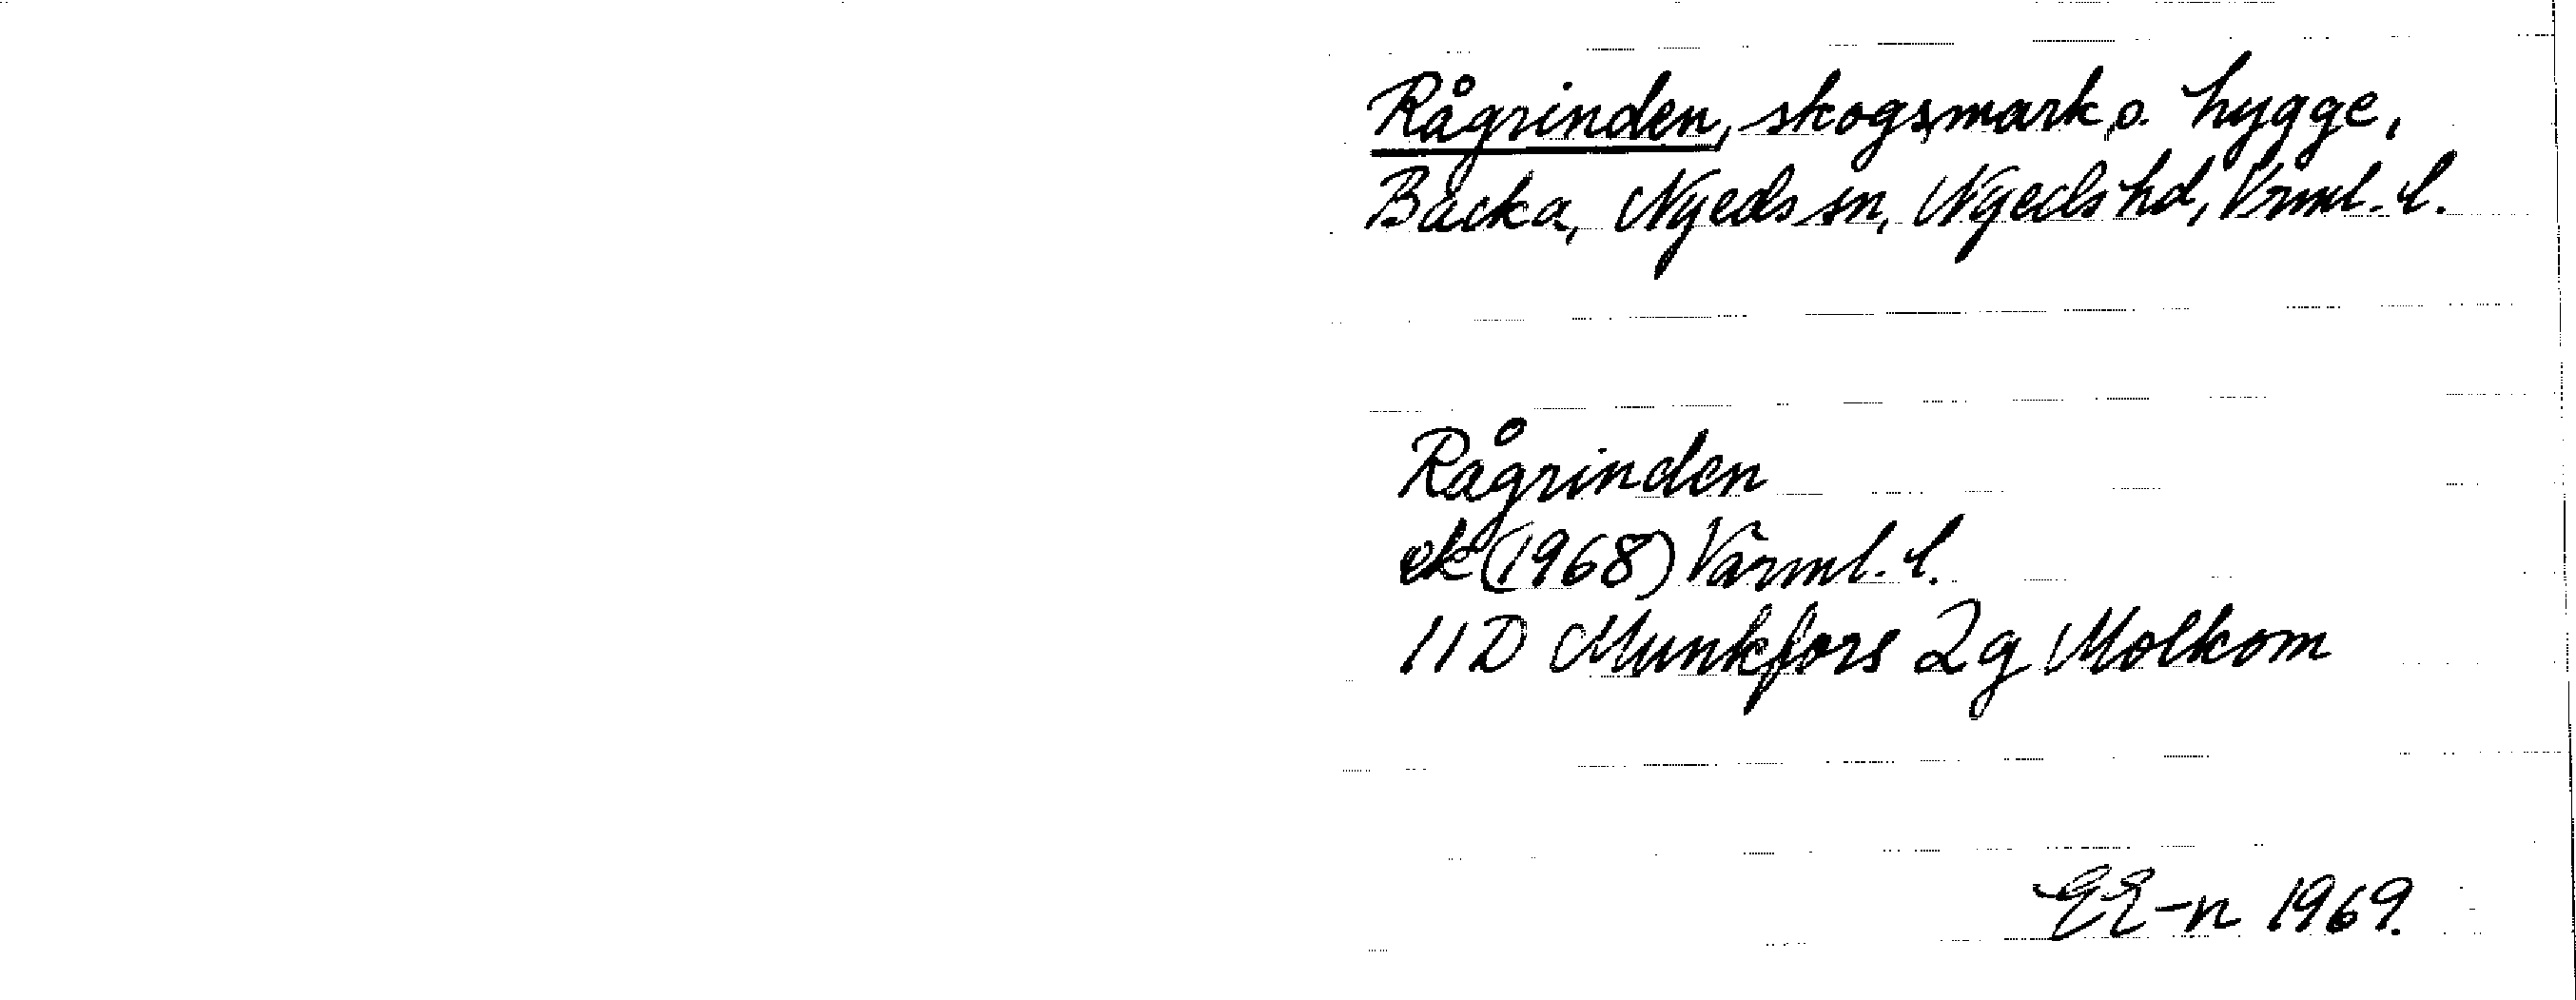 Rågrinden, skogsmark o. hygge,
Backa, Nyeds sn, Nyeds hd, Vrml. l.
Rågrinden
ek (1968) Värml. l.
11D Munkfors 2g Molkom
EE-n 1969.